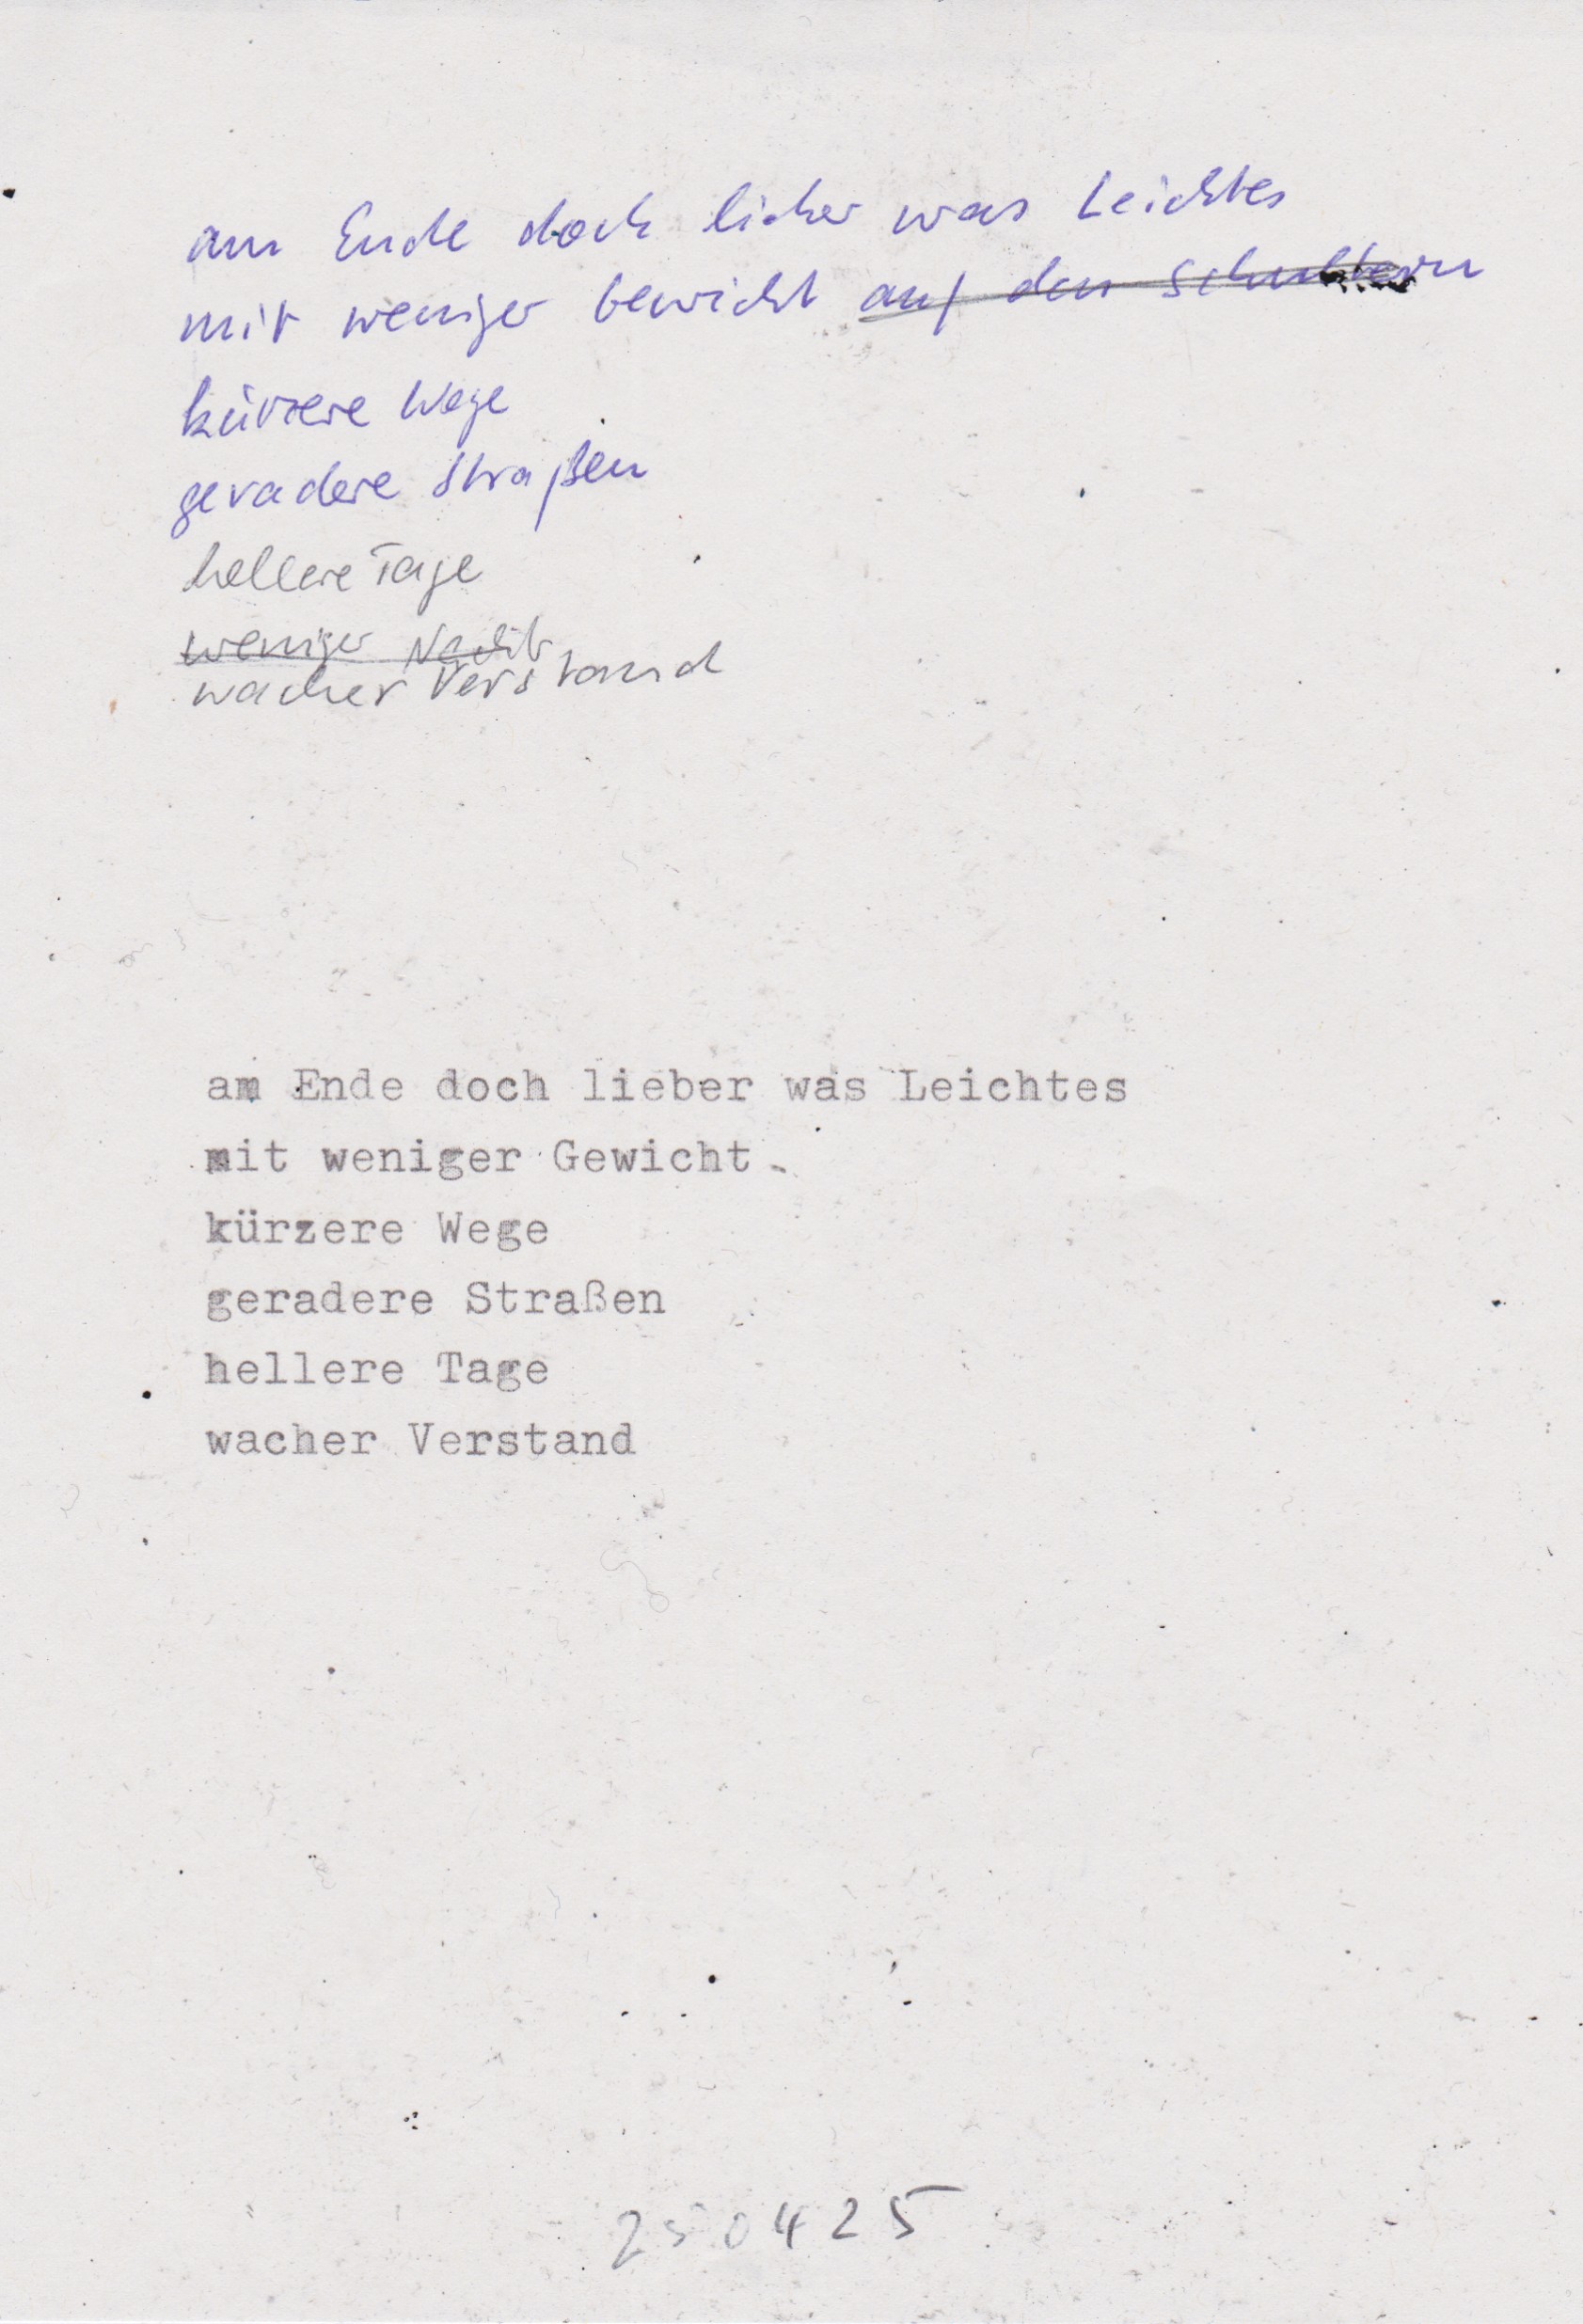 am Ende doch lieber was Leichtes
mit weniger Gewicht auf den Schultern
kürzere Wege
geradere Straßen
hellere Tage
weniger Nacht
wacher Verstand
am Ende doch lieber was Leichtes
mit weniger Gewicht
kürzere Wege
geradere Straßen
hellere Tage
wacher Verstand
250425